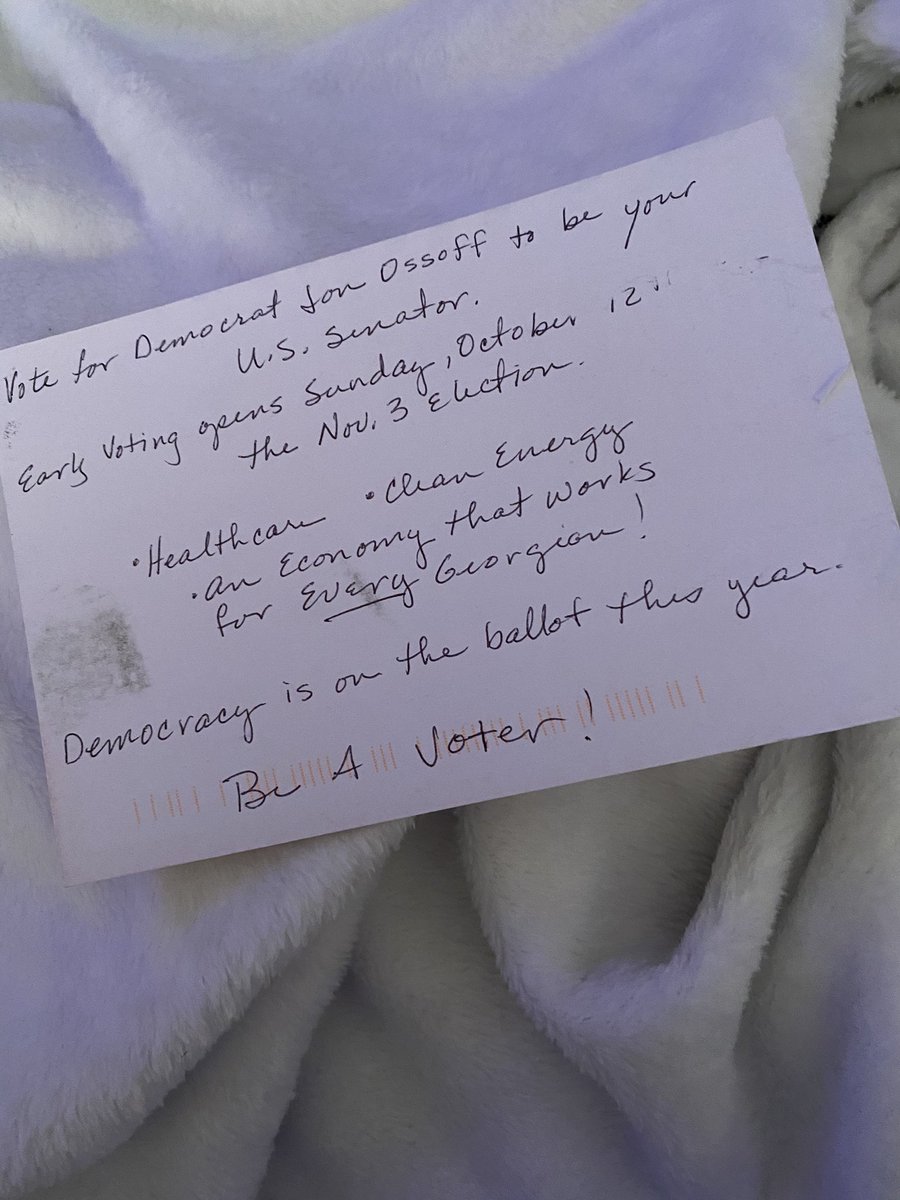 Vote for Democrat Jon Ossoff to be your
U.S. Senator.
Early Voting opens Sunday, October 12
the Nov. 3 Election.
• Healthcare • Clean Energy
• an Economy that works
for Every Georgian!
Democracy is on the ballot this year.
Be A Voter!